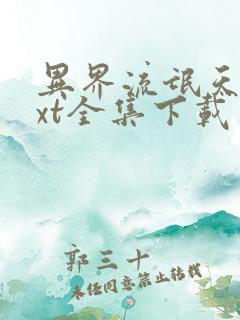 異界流氓天
xt全集下載
郭三十
未经同意禁止转载